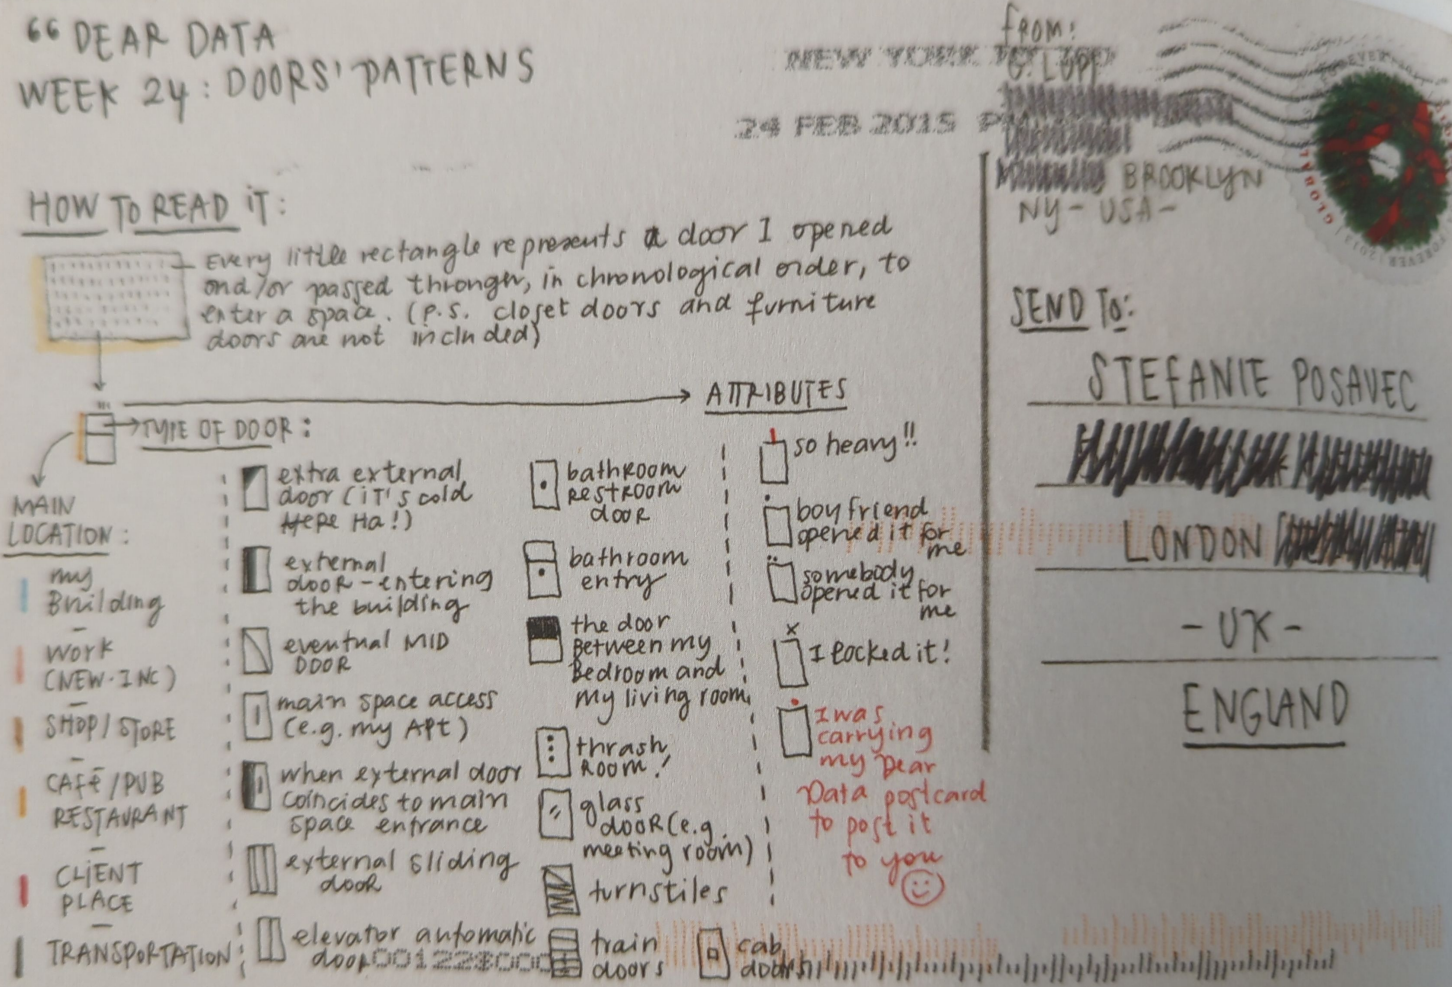 “DEAR DATA
WEEK 24: DOORS' PATTERNS
NEW YORK
24 FEB 2015
FROM:
G. LUPI
BROOKLYN
NY - USA -
FOREVER
GLOBAL
HOW TO READ IT:
Every little rectangle represents a door I opened
and/or passed through, in chronological order, to
enter a space. (P.S. closet doors and furniture
doors are not included)
SEND TO:
STEFANIE POSAVEC
LONDON
- UK -
ENGLAND
TYPE OF DOOR:
ATTRIBUTES
MAIN
LOCATION:
my
Building
WORK
(NEW·INC)
SHOP/STORE
CAFé/PUB
RESTAURANT
CLIENT
PLACE
TRANSPORTATION
extra external
door (iT's cold
HERE Ha!)
external
door - entering
the building
eventual MID
DOOR
main space access
(e.g. my APt)
when external door
coincides to main
space entrance
external sliding
door
elevator automatic
door
bathroom
RESTROOM
door
bathroom
entry
the door
Between my
Bedroom and
my living room
thrash
ROOM!
glass
dooR (e.g.
meeting room)
turnstiles
train
doors
cab
doors
so heavy!!
boyfriend
opened it for
me
somebody
opened it for
me
I locked it!
I was
carrying
my Dear
Data postcard
to post it
to you